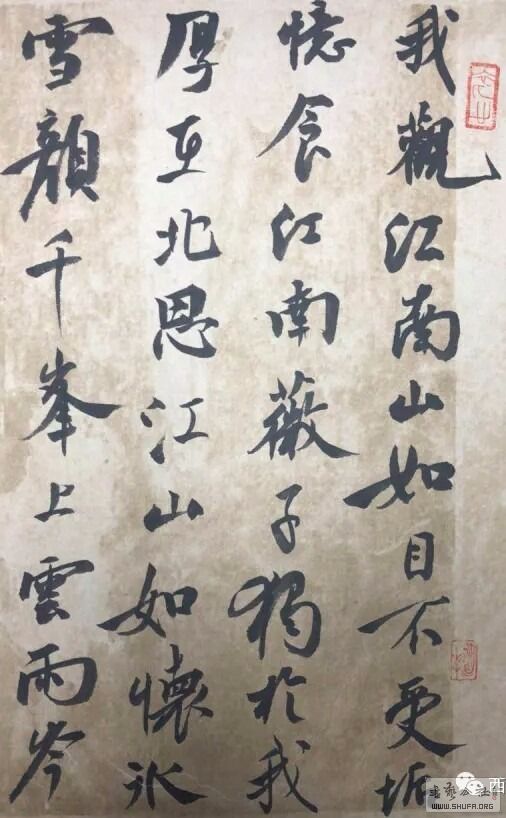 我觀江南山如目不受垢
憶食江南薇子獨於我
厚在北思江山如懷冰
雪顏千峯上雲雨岑
西
WWW.SHUFA.ORG